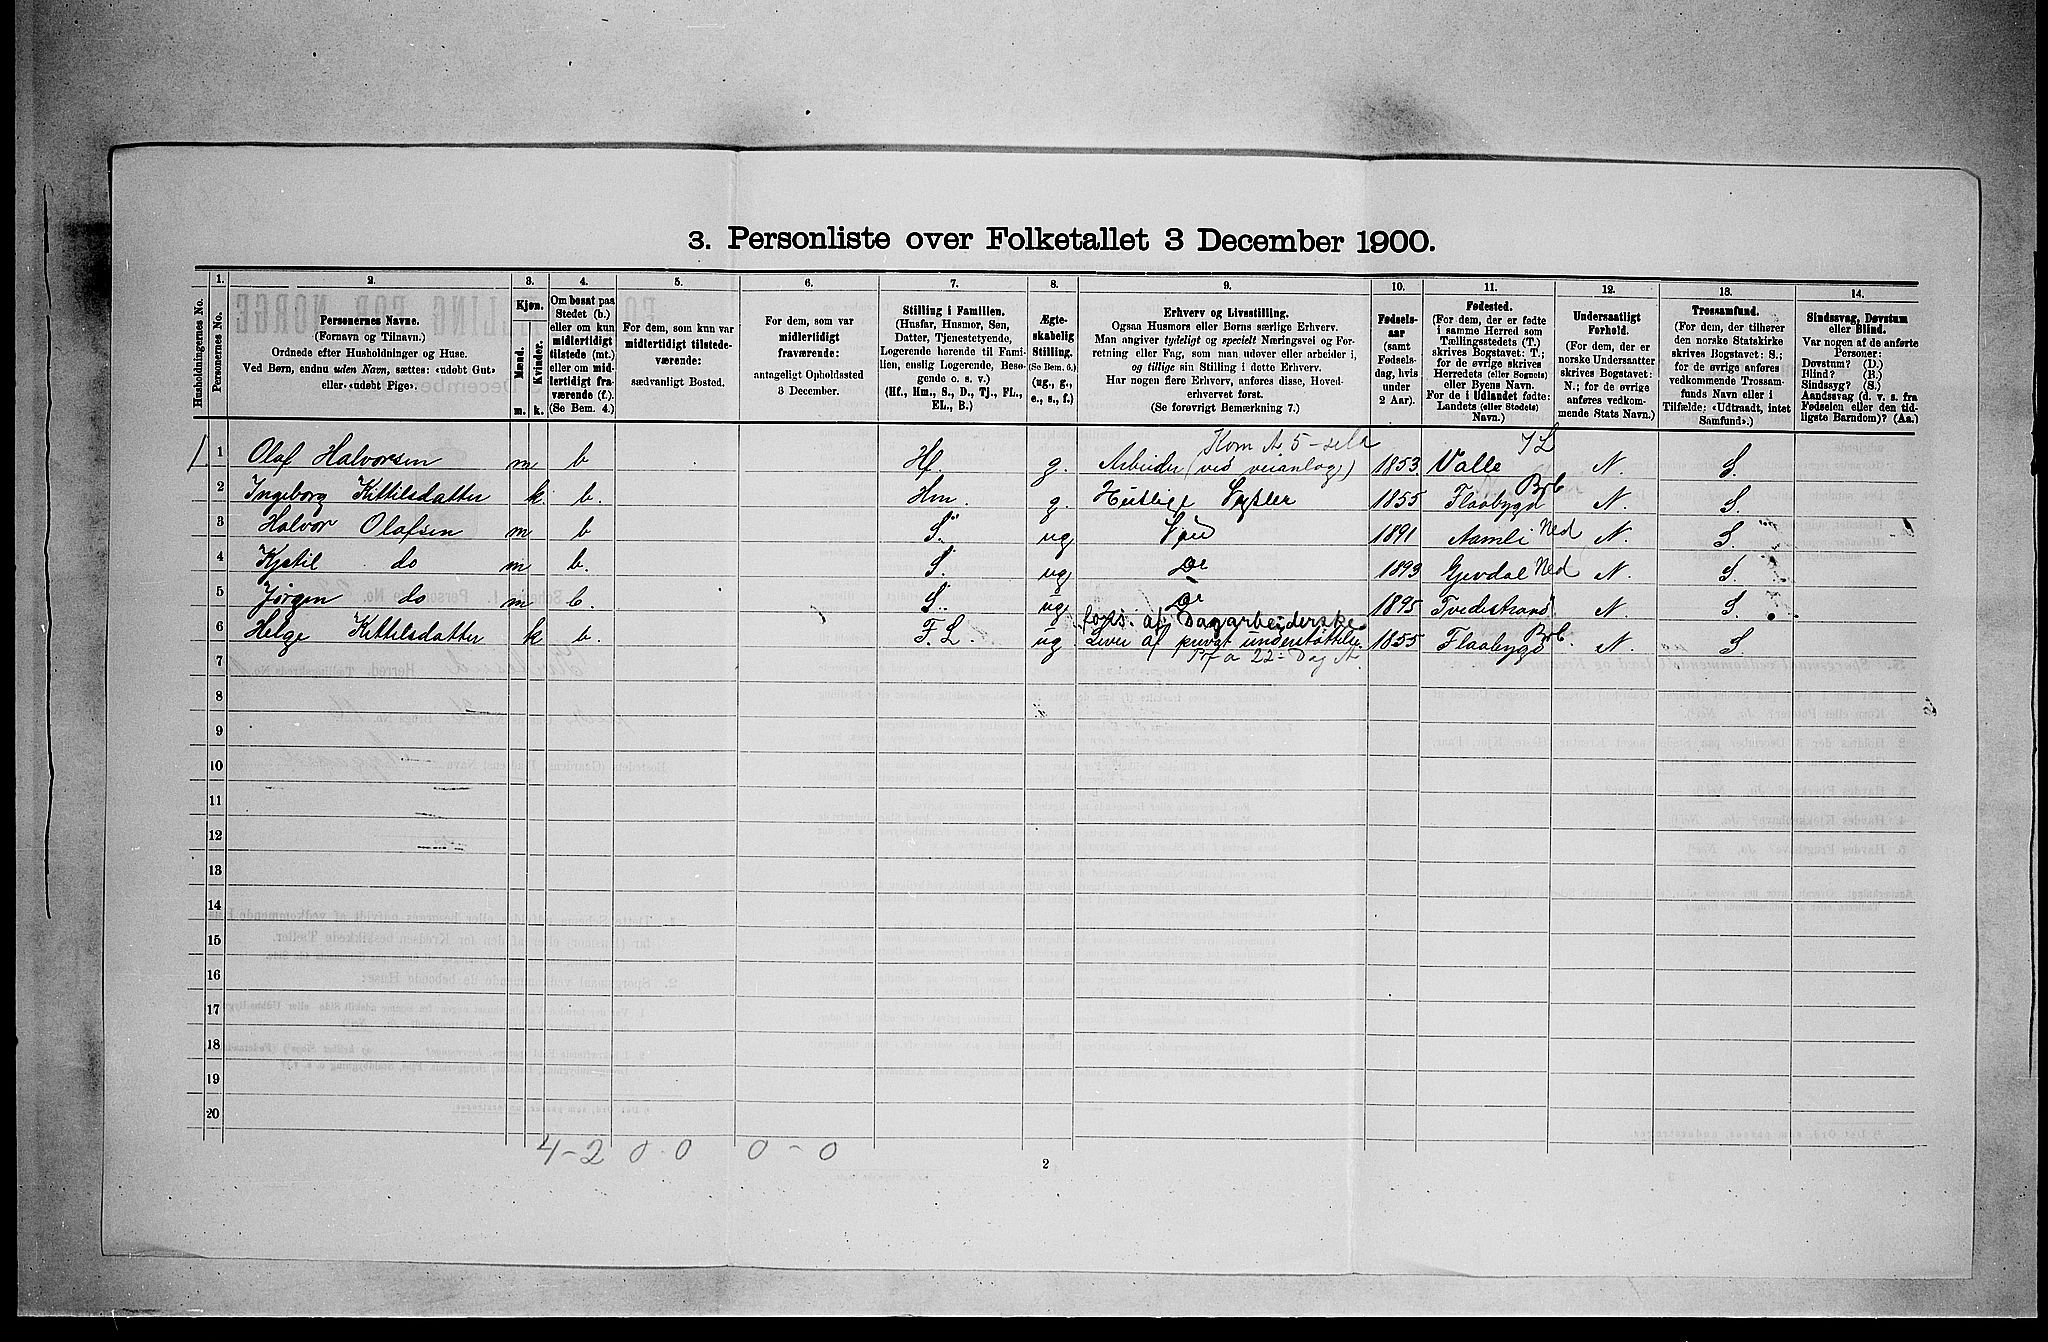 3. Personliste over Folketallet 3 December 1900.
Husholdningernes No.
1.
Personernes No.
2.
Personernes Navne.
(Fornavn og Tilnavn.)
Ordnede efter Husholdninger og Huse.
Ved Børn, endnu uden Navn, sættes: «udøbt Gut»
eller «udøbt Pige».
3.
Kjøn.
Mænd.
m.
Kvinder.
k.
4.
Om bosat paa
Stedet (b.)
eller om kun
midlertidigt
tilstede (mt.)
eller om mid-
lertidigt fra-
værende (f.).
(Se Bem. 4.)
5.
For dem, som kun var
midlertidigt tilstede-
værende:
sædvanligt Bosted.
6.
For dem, som var
midlertidigt
fraværende:
antageligt Opholdssted
3 December.
7.
Stilling i Familien.
(Husfar, Husmor, Søn,
Datter, Tjenestetyende,
Logerende hørende til Fami-
lien, enslig Logerende, Besø-
gende o. s. v.)
(Hf., Hm., S., D., Tj., FL.,
EL., B.)
8.
Ægte-
skabelig
Stilling.
(Se Bem. 6.)
(ug., g.,
e., s., f.)
9.
Erhverv og Livsstilling.
Ogsaa Husmors eller Børns særlige Erhverv.
Man angiver tydeligt og specielt Næringsvei og For-
retning eller Fag, som man udøver eller arbeider i,
og tillige sin Stilling i dette Erhverv.
Har nogen flere Erhverv, anføres disse, Hoved-
erhvervet først.
(Se forøvrigt Bemærkning 7.)
10.
Fødsels-
aar
(samt
Fødsels-
dag, hvis
under
2 Aar).
11.
Fødested.
(For dem, der er fødte
i samme Herred som
Tællingsstedets (T.)
skrives Bogstavet: T.;
for de øvrige skrives
Herredets (eller Sognets)
eller Byens Navn.
For de i Udlandet fødte:
Landets (eller Stedets)
Navn.)
12.
Undersaatligt
Forhold.
(For dem, der er
norske Undersaatter
skrives Bogstavet:
N.; for de øvrige
anføres vedkom-
mende Stats Navn.)
13.
Trossamfund.
(For dem, der tilhører
den norske Statskirke
skrives Bogstavet: S.;
for de øvrige anføres
vedkommende Trossam-
funds Navn eller i
Tilfælde: «Udtraadt, intet
Samfund».)
14.
Sindssvag, Døvstum
eller Blind.
Var nogen af de anførte
Personer:
Døvstum? (D.)
Blind? (B.)
Sindssyg? (S.)
Aandssvag (d. v. s. fra
Fødselen eller den tid-
ligste Barndom)? (Aa.)
1. 1 Olaf Halvorsen m b Hf. g. Arbeider (ved veianlag) 1853. Valle N. S.
2 Ingeborg Kittilsdatter k. b. Hm. g. Huslige Sysler 1855 Flaabygd Brb N. S.
3 Halvor Olafsen m b S. ug Søn 1891 Aamli Ned N. S.
4 Kjetil do m b. S. ug Do 1893 Gjevdal Ned N. S.
5 Jørgen do m b. S. ug Do 1895 Tvedestrand N. S.
fors. af Dagarbeiderske
6 Helge Kittilsdatter k b. F. L ug Lever af privat understøttelse 1855 Flaabygd Brb. N. S
7
8
9
10
11
12
13
14
15
16
17
18
19
20
4 - 2 0 . 0 0 - 0
2